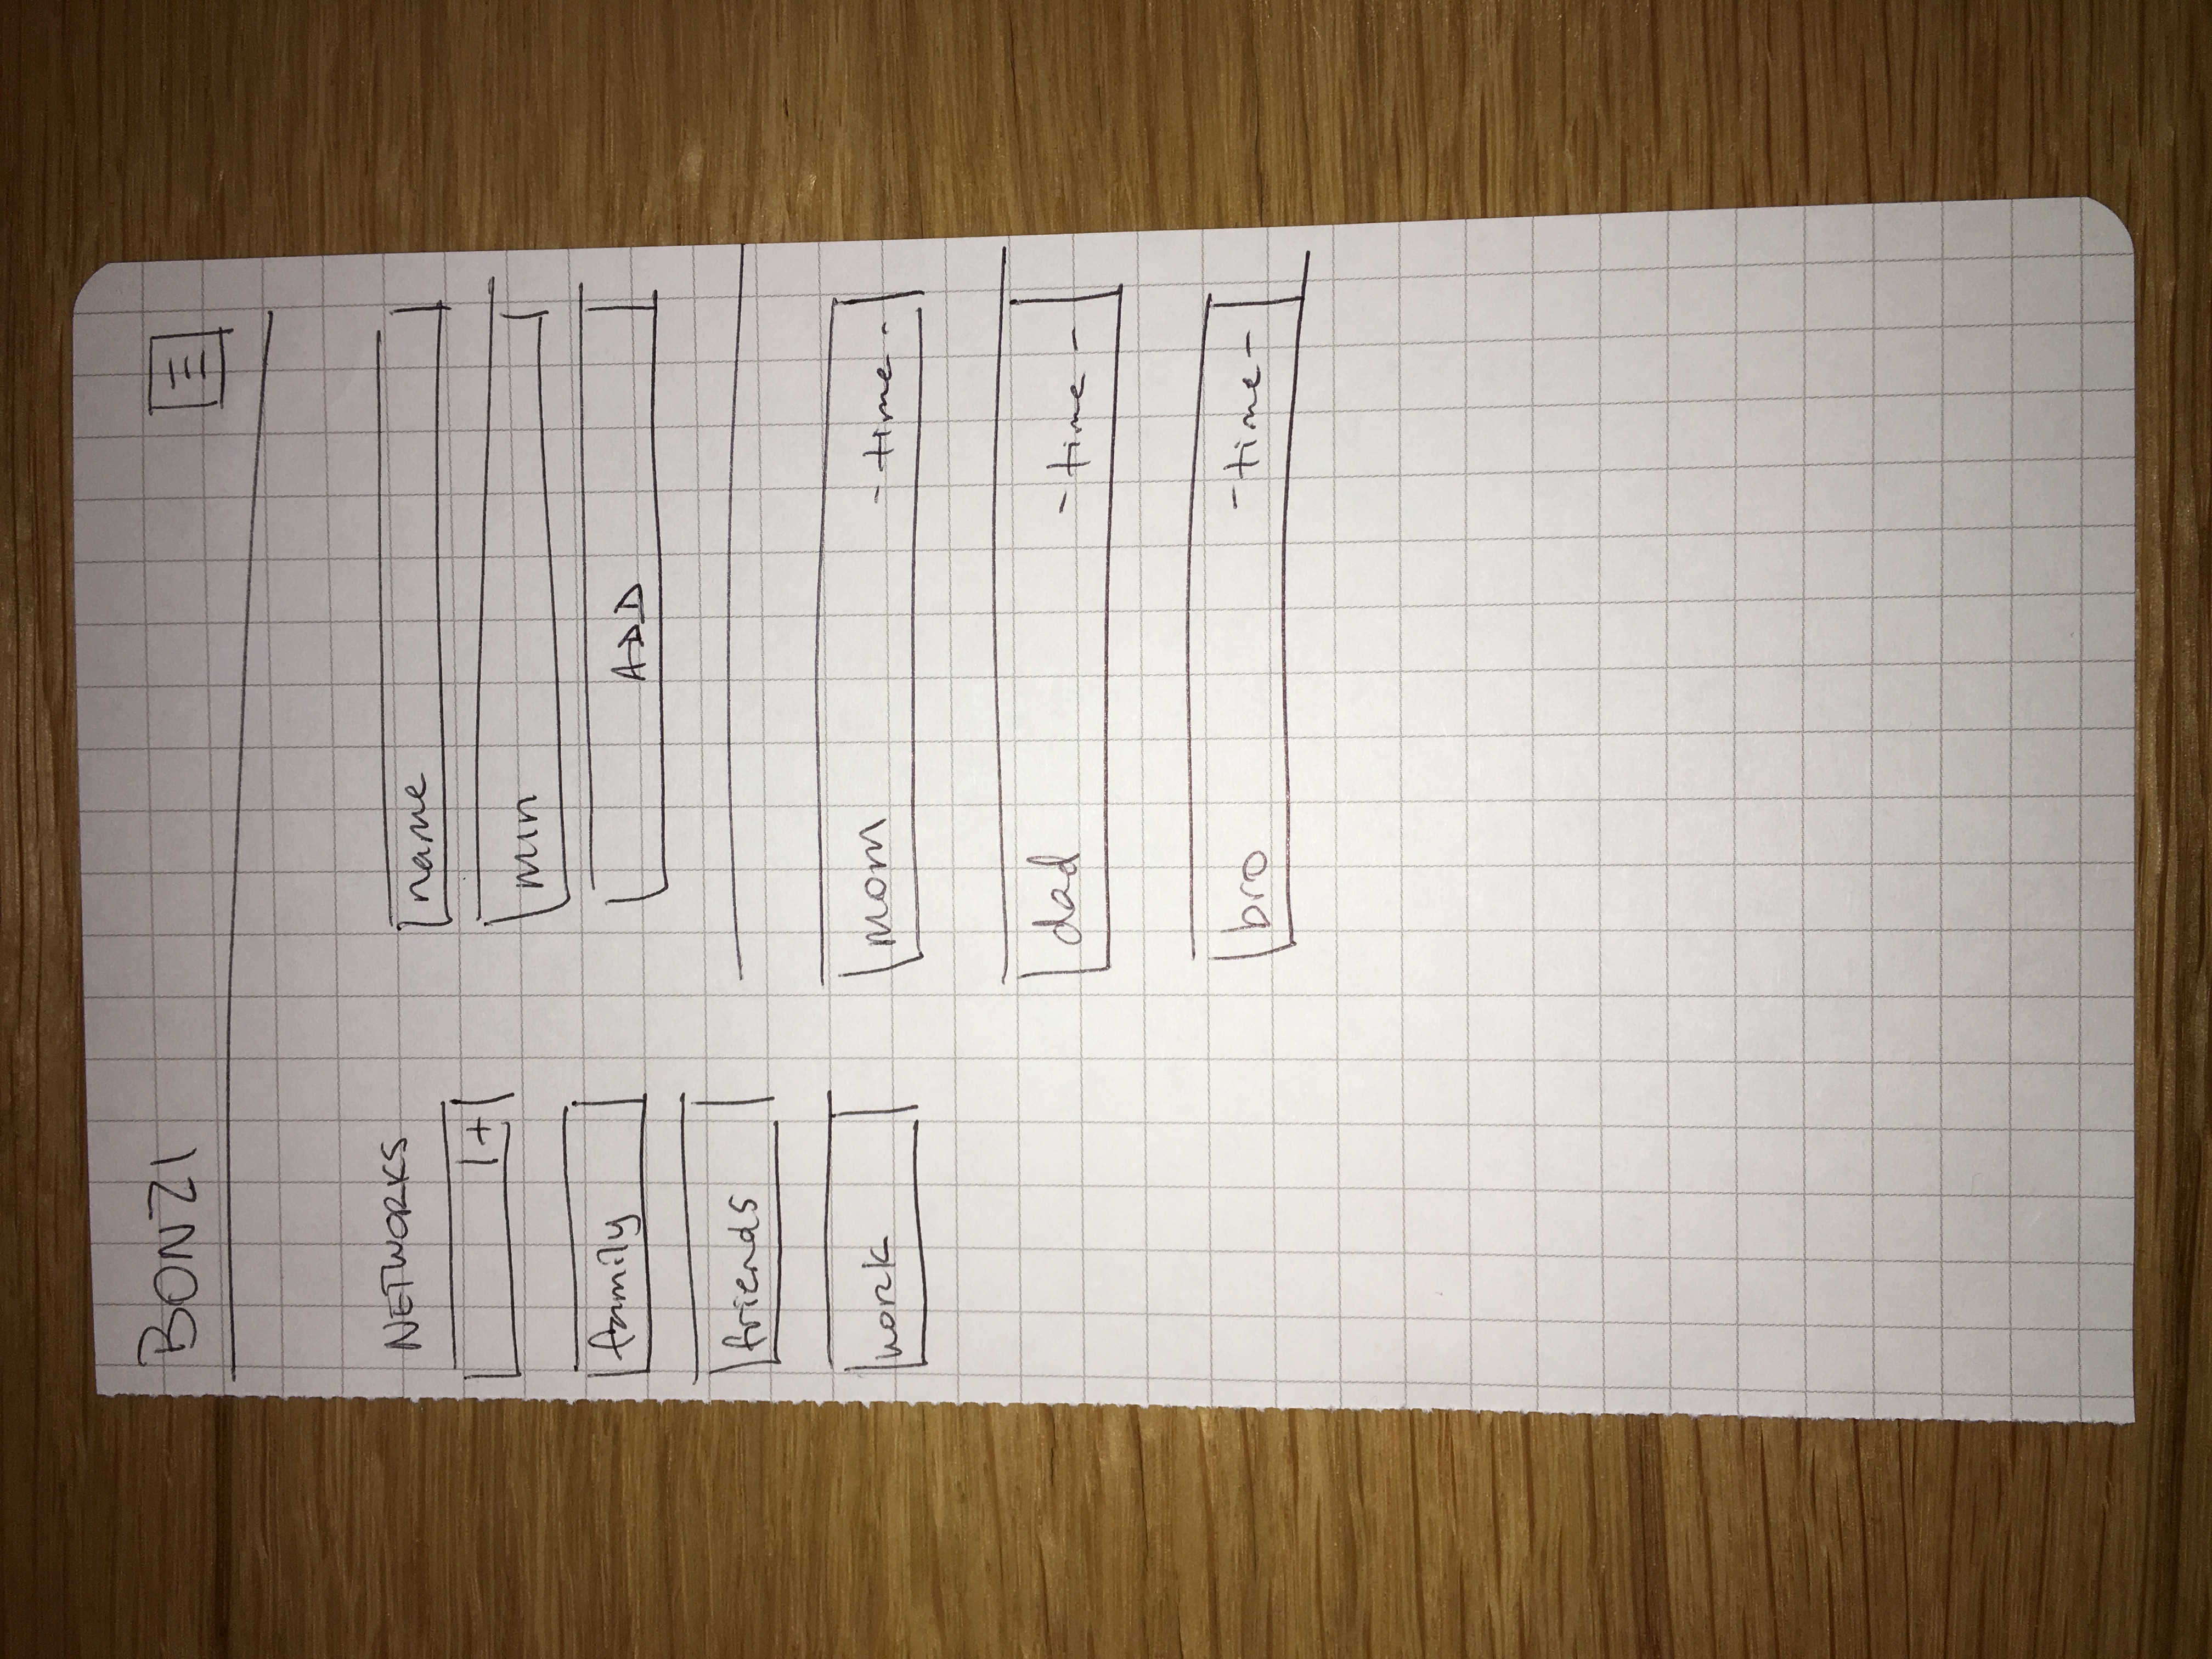 BONZI
NETWORKS
+
family
friends
work
name
min
ADD
mom -time-
dad -time-
bro -time-